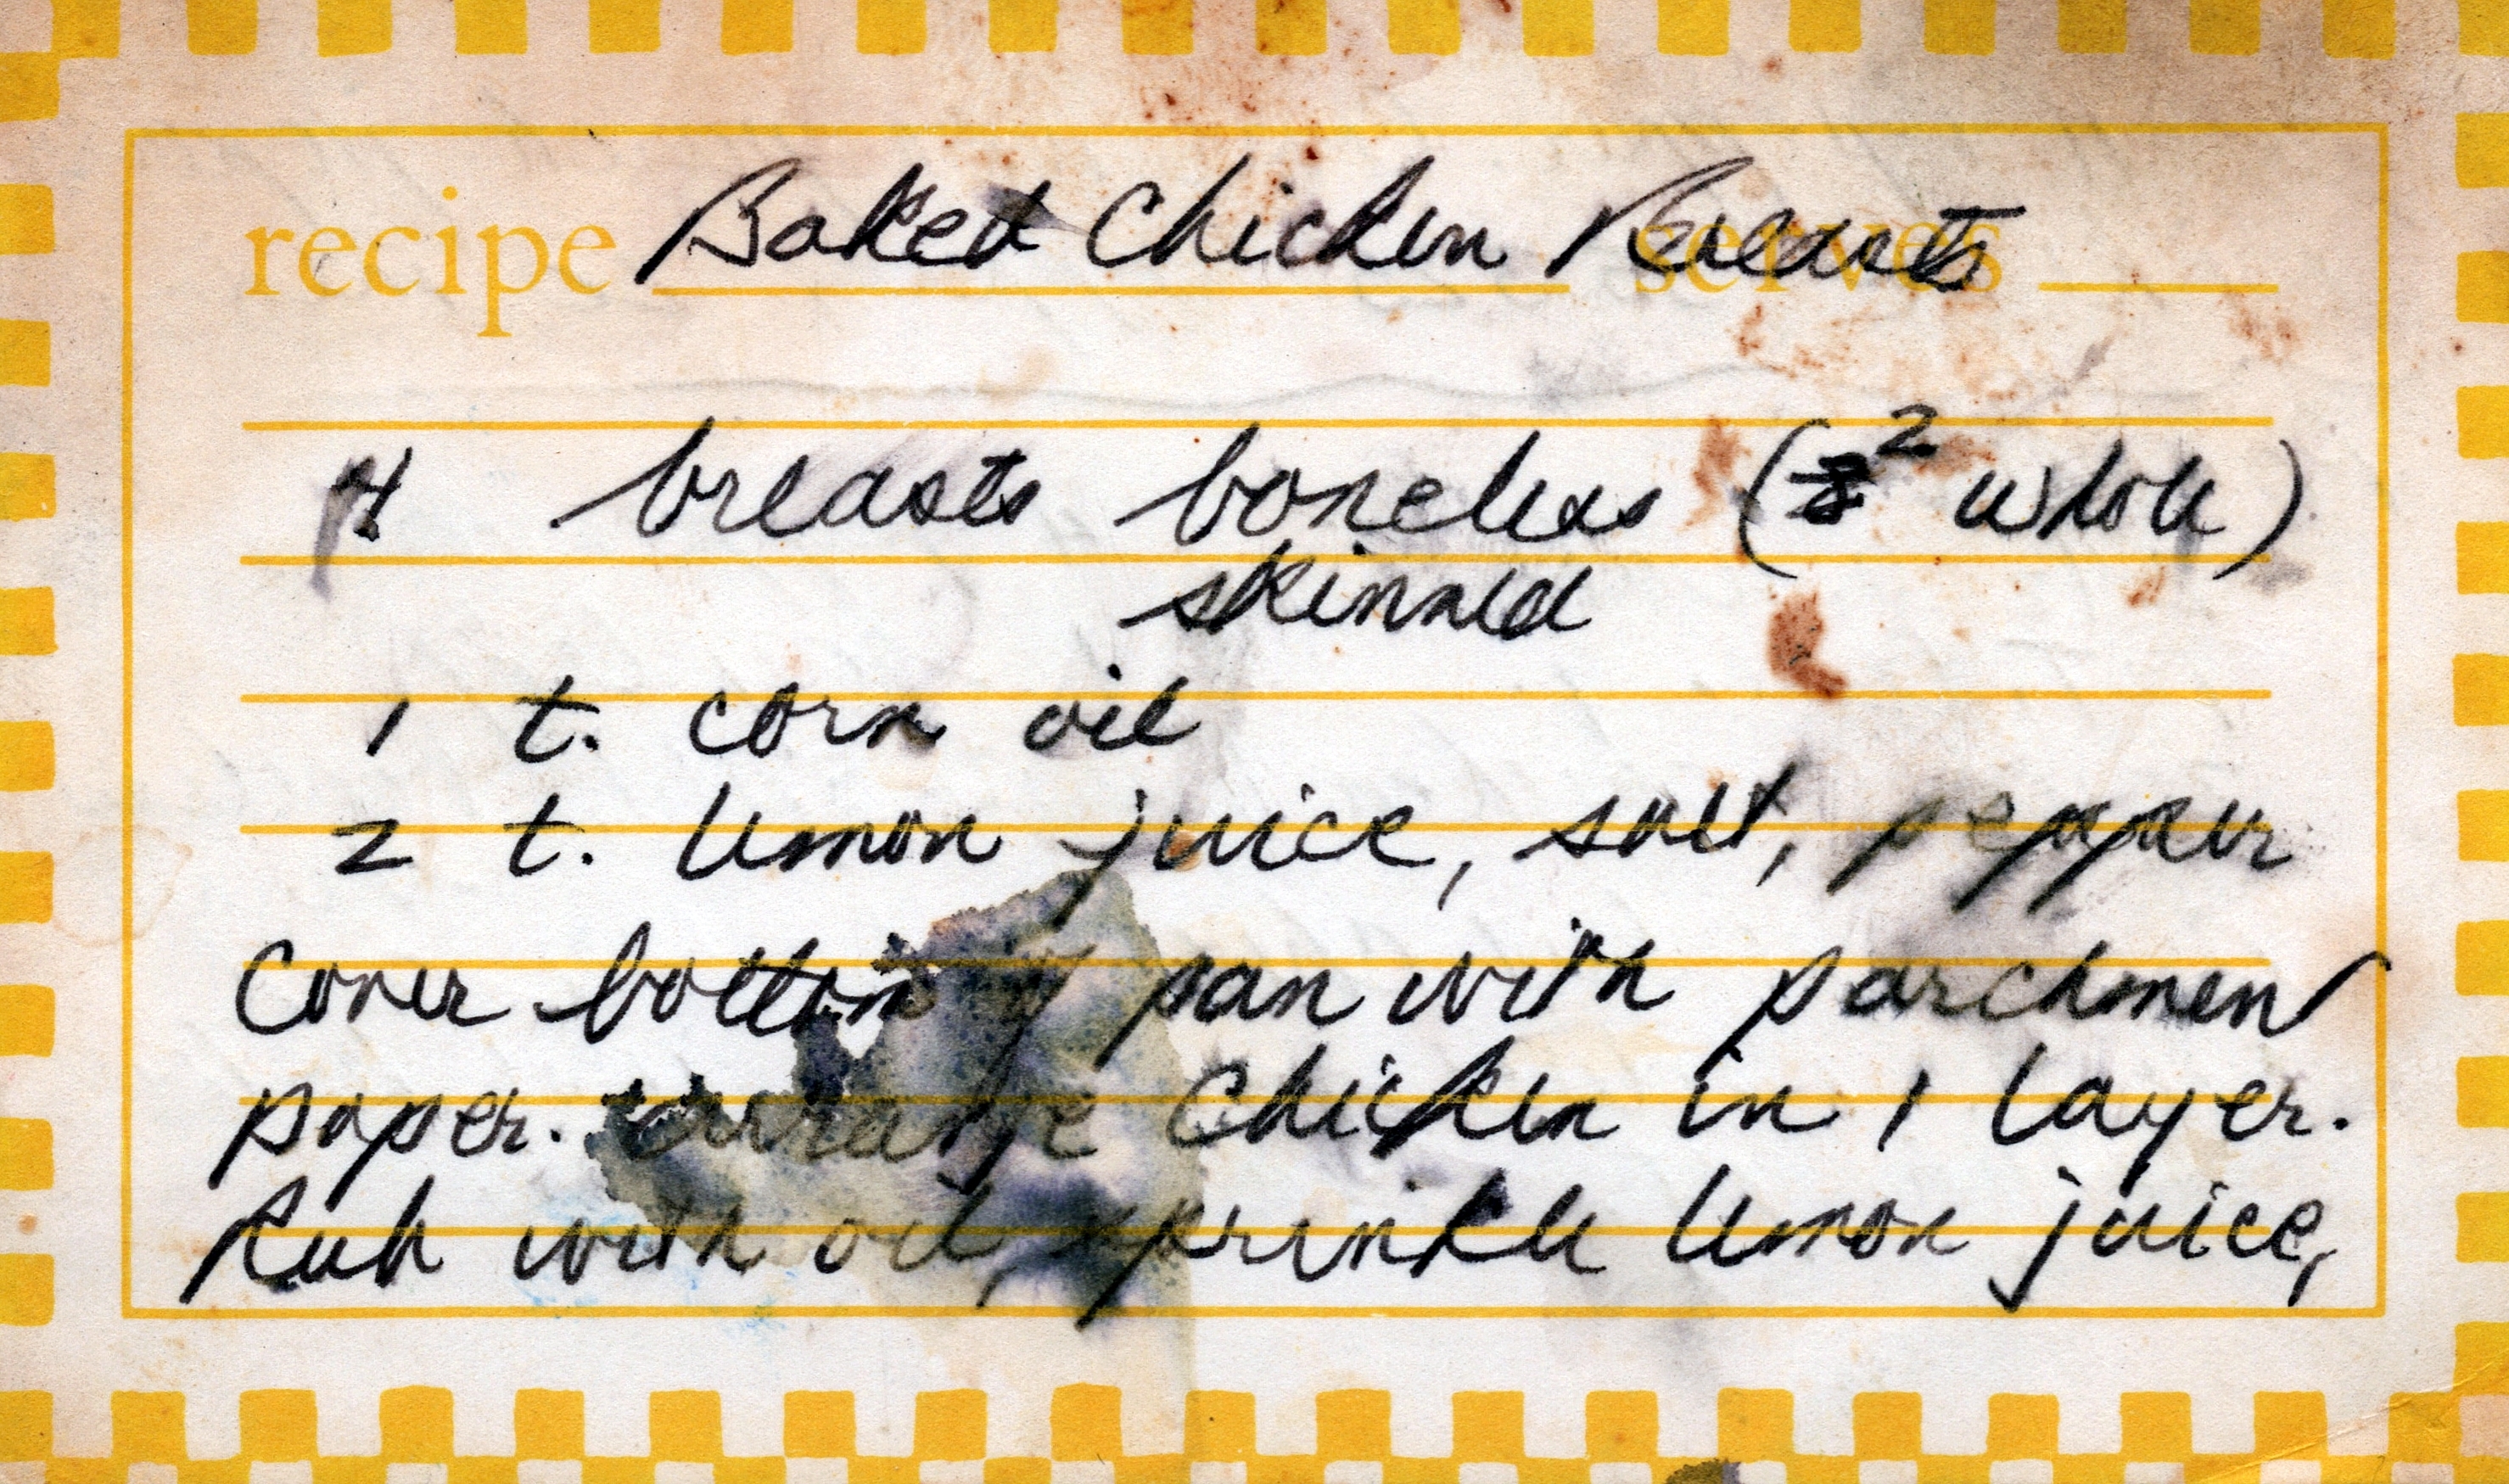 recipe Baked Chicken Breasts serves
4 breasts boneless (2 whole)
skinned
1 t. corn oil
2 t. lemon juice, salt, pepper
Cover bottom of pan with parchment
paper. Arrange Chicken in 1 layer.
Rub with oil, sprinkle lemon juice,